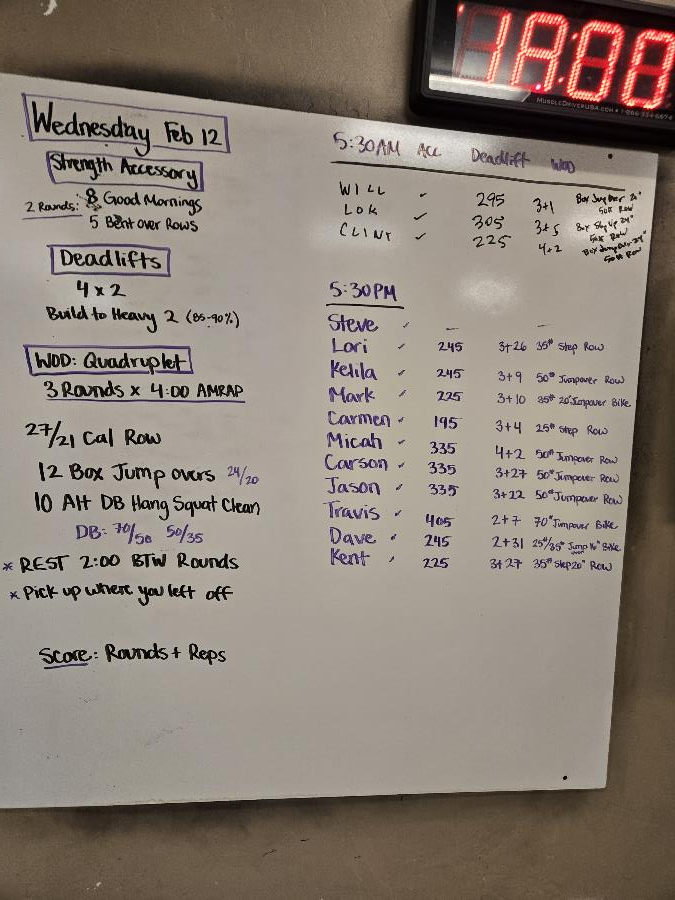 18:00
MUSCLEDRIVERUSA.COM
Wednesday Feb 12
Strength Accessory
2 Rounds: 8 Good Mornings
5 Bent over Rows
Deadlifts
4 x 2
Build to Heavy 2 (85-90%)
WOD: Quadruplet
3 Rounds x 4:00 AMRAP
27/21 Cal Row
12 Box Jump overs 24/20
10 Alt DB Hang Squat Clean
DB: 70/50 50/35
* REST 2:00 BTW Rounds
* Pick up where you left off
Score: Rounds + Reps
5:30AM ACC Deadlift WOD
WILL ✓ 295 3+1 Box Jump Over 20" 50# Row
LOK ✓ 305 3+5 Box Step Up 24" 50# Row
CLINT ✓ 225 4+2 Box Jump Over 24" 50# Row
5:30PM
Steve ✓ — —
Lori ✓ 245 3+26 35# Step Row
Kelila ✓ 245 3+9 50# Jumpover Row
Mark ✓ 225 3+10 35# 20" Jumpover Bike
Carmen ✓ 195 3+4 25# Step Row
Micah ✓ 335 4+2 50# Jumpover Row
Carson ✓ 335 3+27 50# Jumpover Row
Jason ✓ 335 3+22 50# Jumpover Row
Travis 405 2+7 70# Jumpover Bike
Dave ✓ 245 2+31 25#/35# Jump over 16" Bike
Kent ✓ 225 3+27 35# Step 20" Row